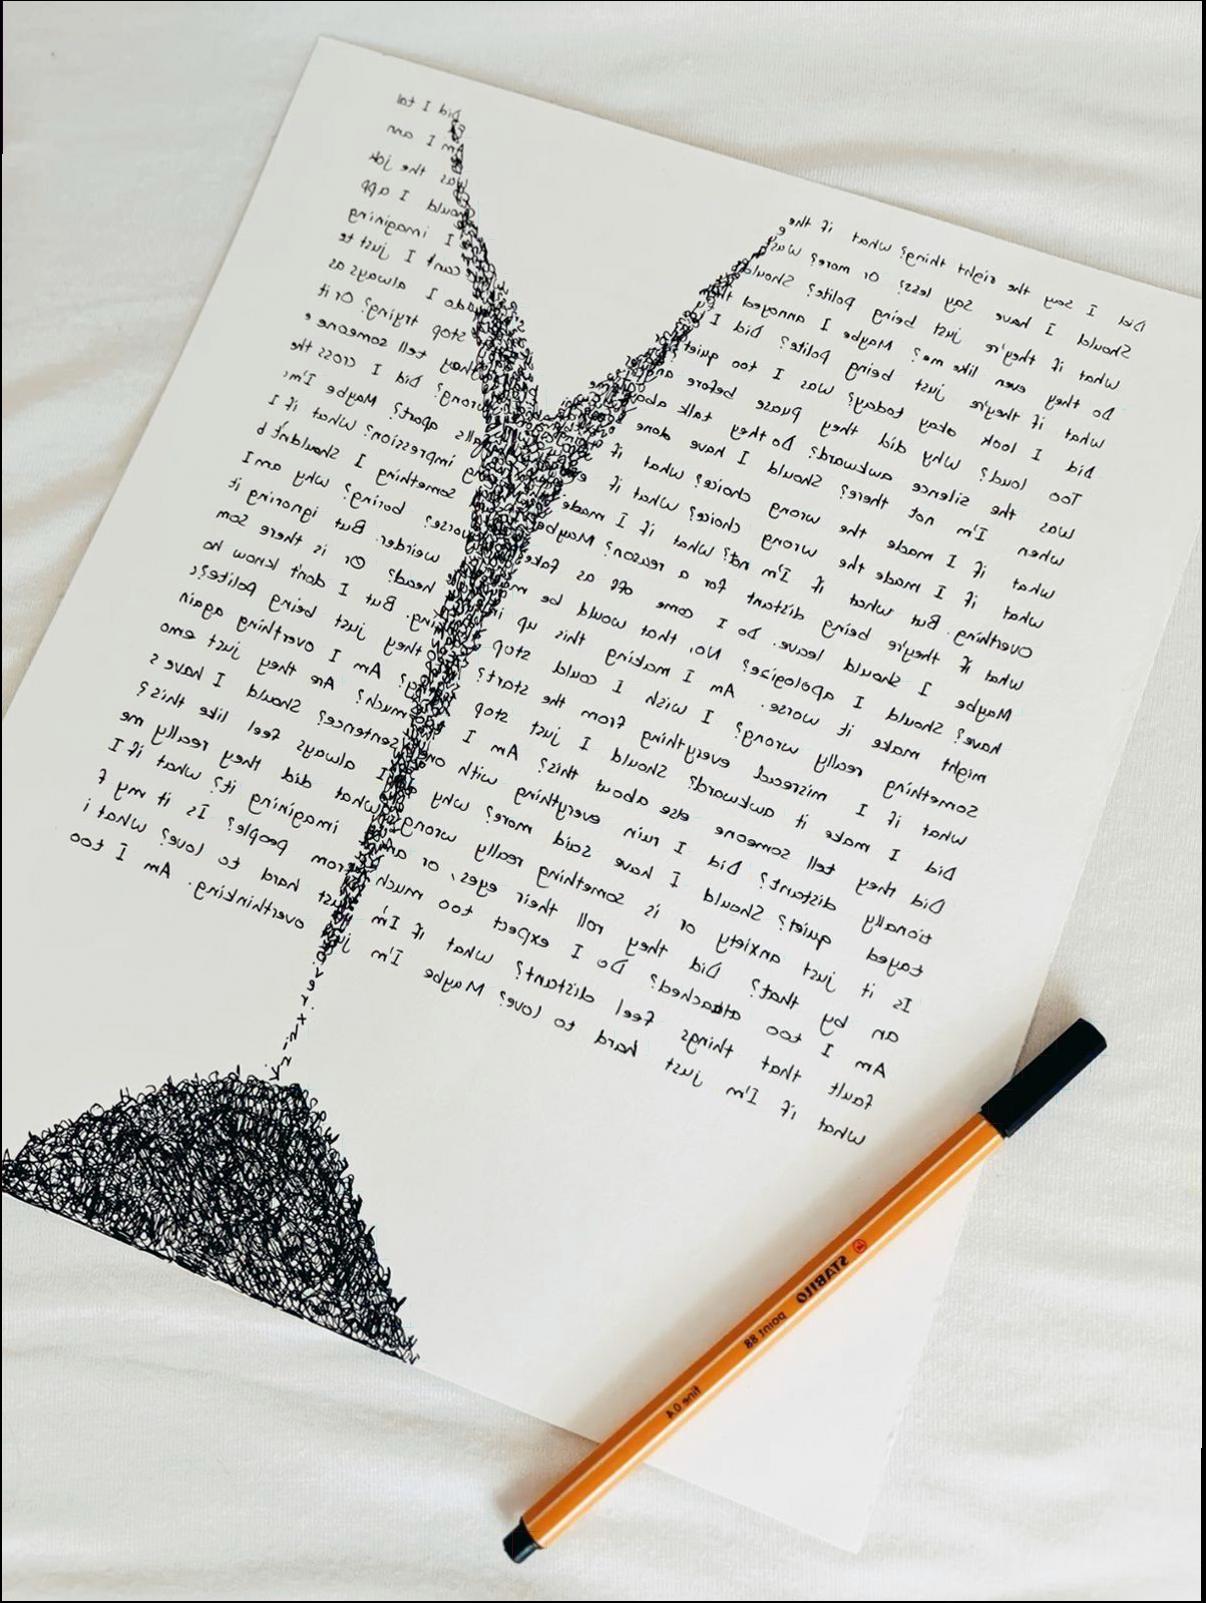 Did I say the right thing? What if the Did I tal
Should I have say less? Or more? Was Am I ann
What if they're just being polite? Should was the jok
Do they even like me? Maybe I annoyed th should I app
What if they're just being polite? Did I I imagining
Did I look okay today? Was I too quiet can't I just te
Too loud? Why did they puase before an do I always as
was the silence awkward? Do they talk abou stop trying? Or it
when I'm not there? Should I have done they tell someone e
What if I made the wrong choice? What if wrong? Did I cross the
What if I made the wrong choice? What if falls apart? Maybe I'm
Overthing. But what if I'm not? What if I made impression? What if I
What if they're being distant for a reason? Maybe something I shouldn't b
Maybe I should leave. Do I come off as fake worse? boring? Why am I
have? Should I apologize? No, that would be ma weirder. But ignoring it
might make it worse. Am I making this up in head? Or is there som
Something really wrong? I wish I could stop king. But I don't know ho
What if I misread everything from the start? they just being polite?
Did I make it awkward? Should I just stop Am I overthing again
Did they tell someone else about this? Am I much? Are they just emo
tionally distant? Did I ruin everything with one sentence? Should I have s
tayed quiet? Should I have said more? Why I always feel like this?
Is it just anxiety or is something really wrong What did they really me
an by that? Did they roll their eyes, or am imagining it? What if I
Am I too attached? Do I expect too much from people? Is it my f
fault that things feel distant? What if I'm just hard to love? What i
What if I'm just hard to love? Maybe I'm ju overthinking. Am I too
overxhink
STABILO point 88 fine 0.4